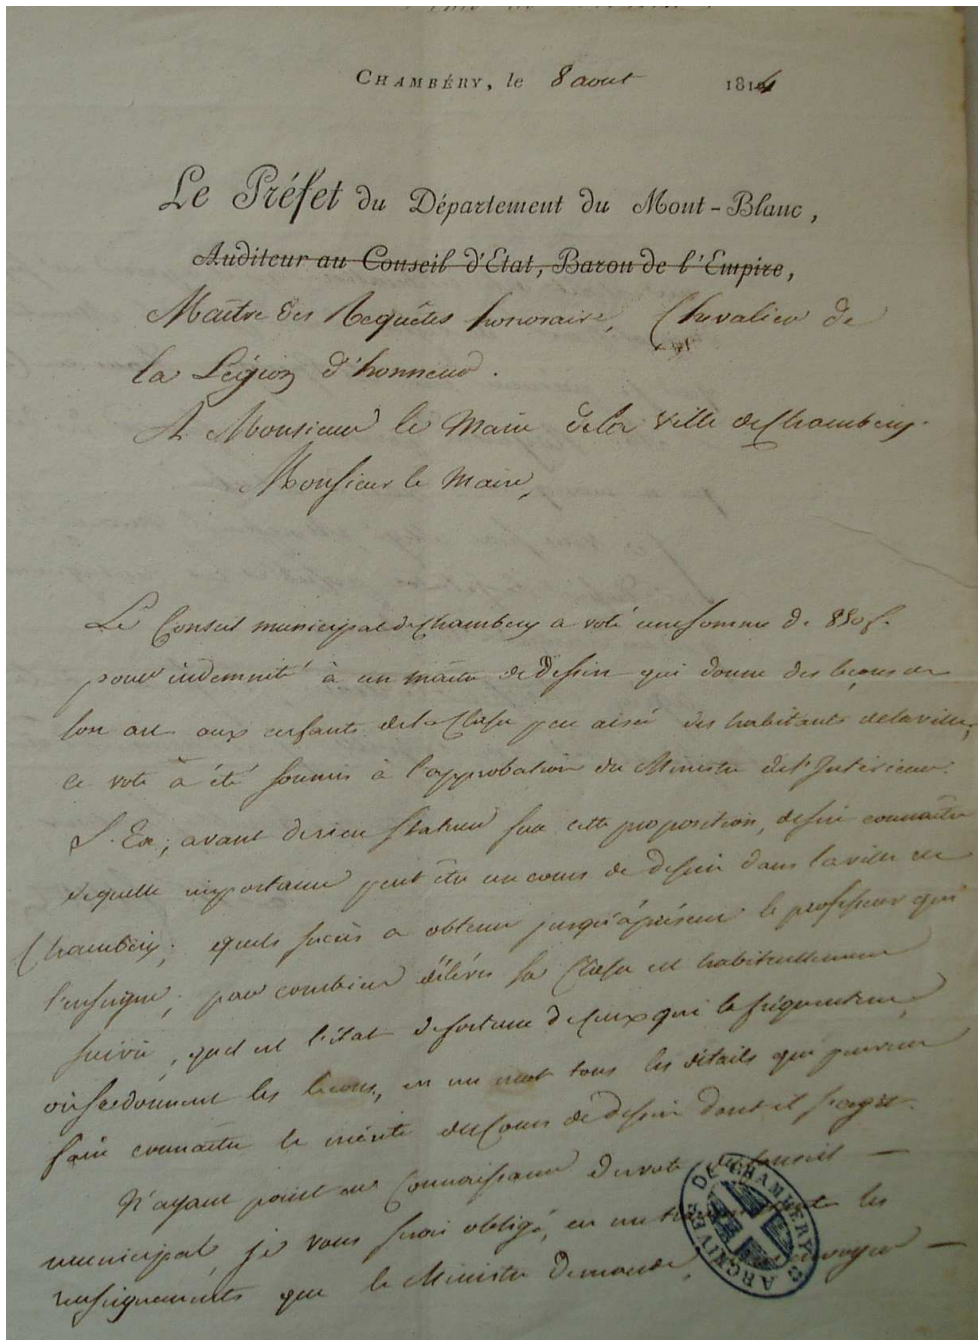 CHAMBÉRY, le 8 aout 1814
Le Préfet du Département du Mont-Blanc,
Auditeur au Conseil d'Etat, Baron de l'Empire,
Maître des Requêtes honoraire, Chevalier de
la Légion d'honneur.
A Monsieur le Maire de la ville de Chambéry.
Monsieur le Maire,
Le Conseil municipal de Chambéry a voté une somme de 850 f.
pour indemnité à un maitre de dessin qui donne des leçons de
son art aux enfants de la classe peu aisée des habitants de la ville,
ce vote a été soumis à l'approbation du Ministre de l'Intérieur.
S. Ex., avant de rien statuer sur cette proposition, desire connaitre
de quelle importance peut être un cours de dessin dans la ville de
Chambéry; quels succès a obtenu jusqu'à présent le professeur qui
l'enseigne; par combien d'élèves sa classe est habituellement
suivie, quel est l'état de fortune de ceux qui la fréquentent,
où se donnent les leçons, en un mot tous les détails qui peuvent
faire connaitre le mérite du Cours de dessin dont il s'agit.
N'ayant point eu connaissance du vote Conseil
municipal, je vous serai obligé, en me les
renseignements que le Ministre demande,
ARCHIVES DE CHAMBERY